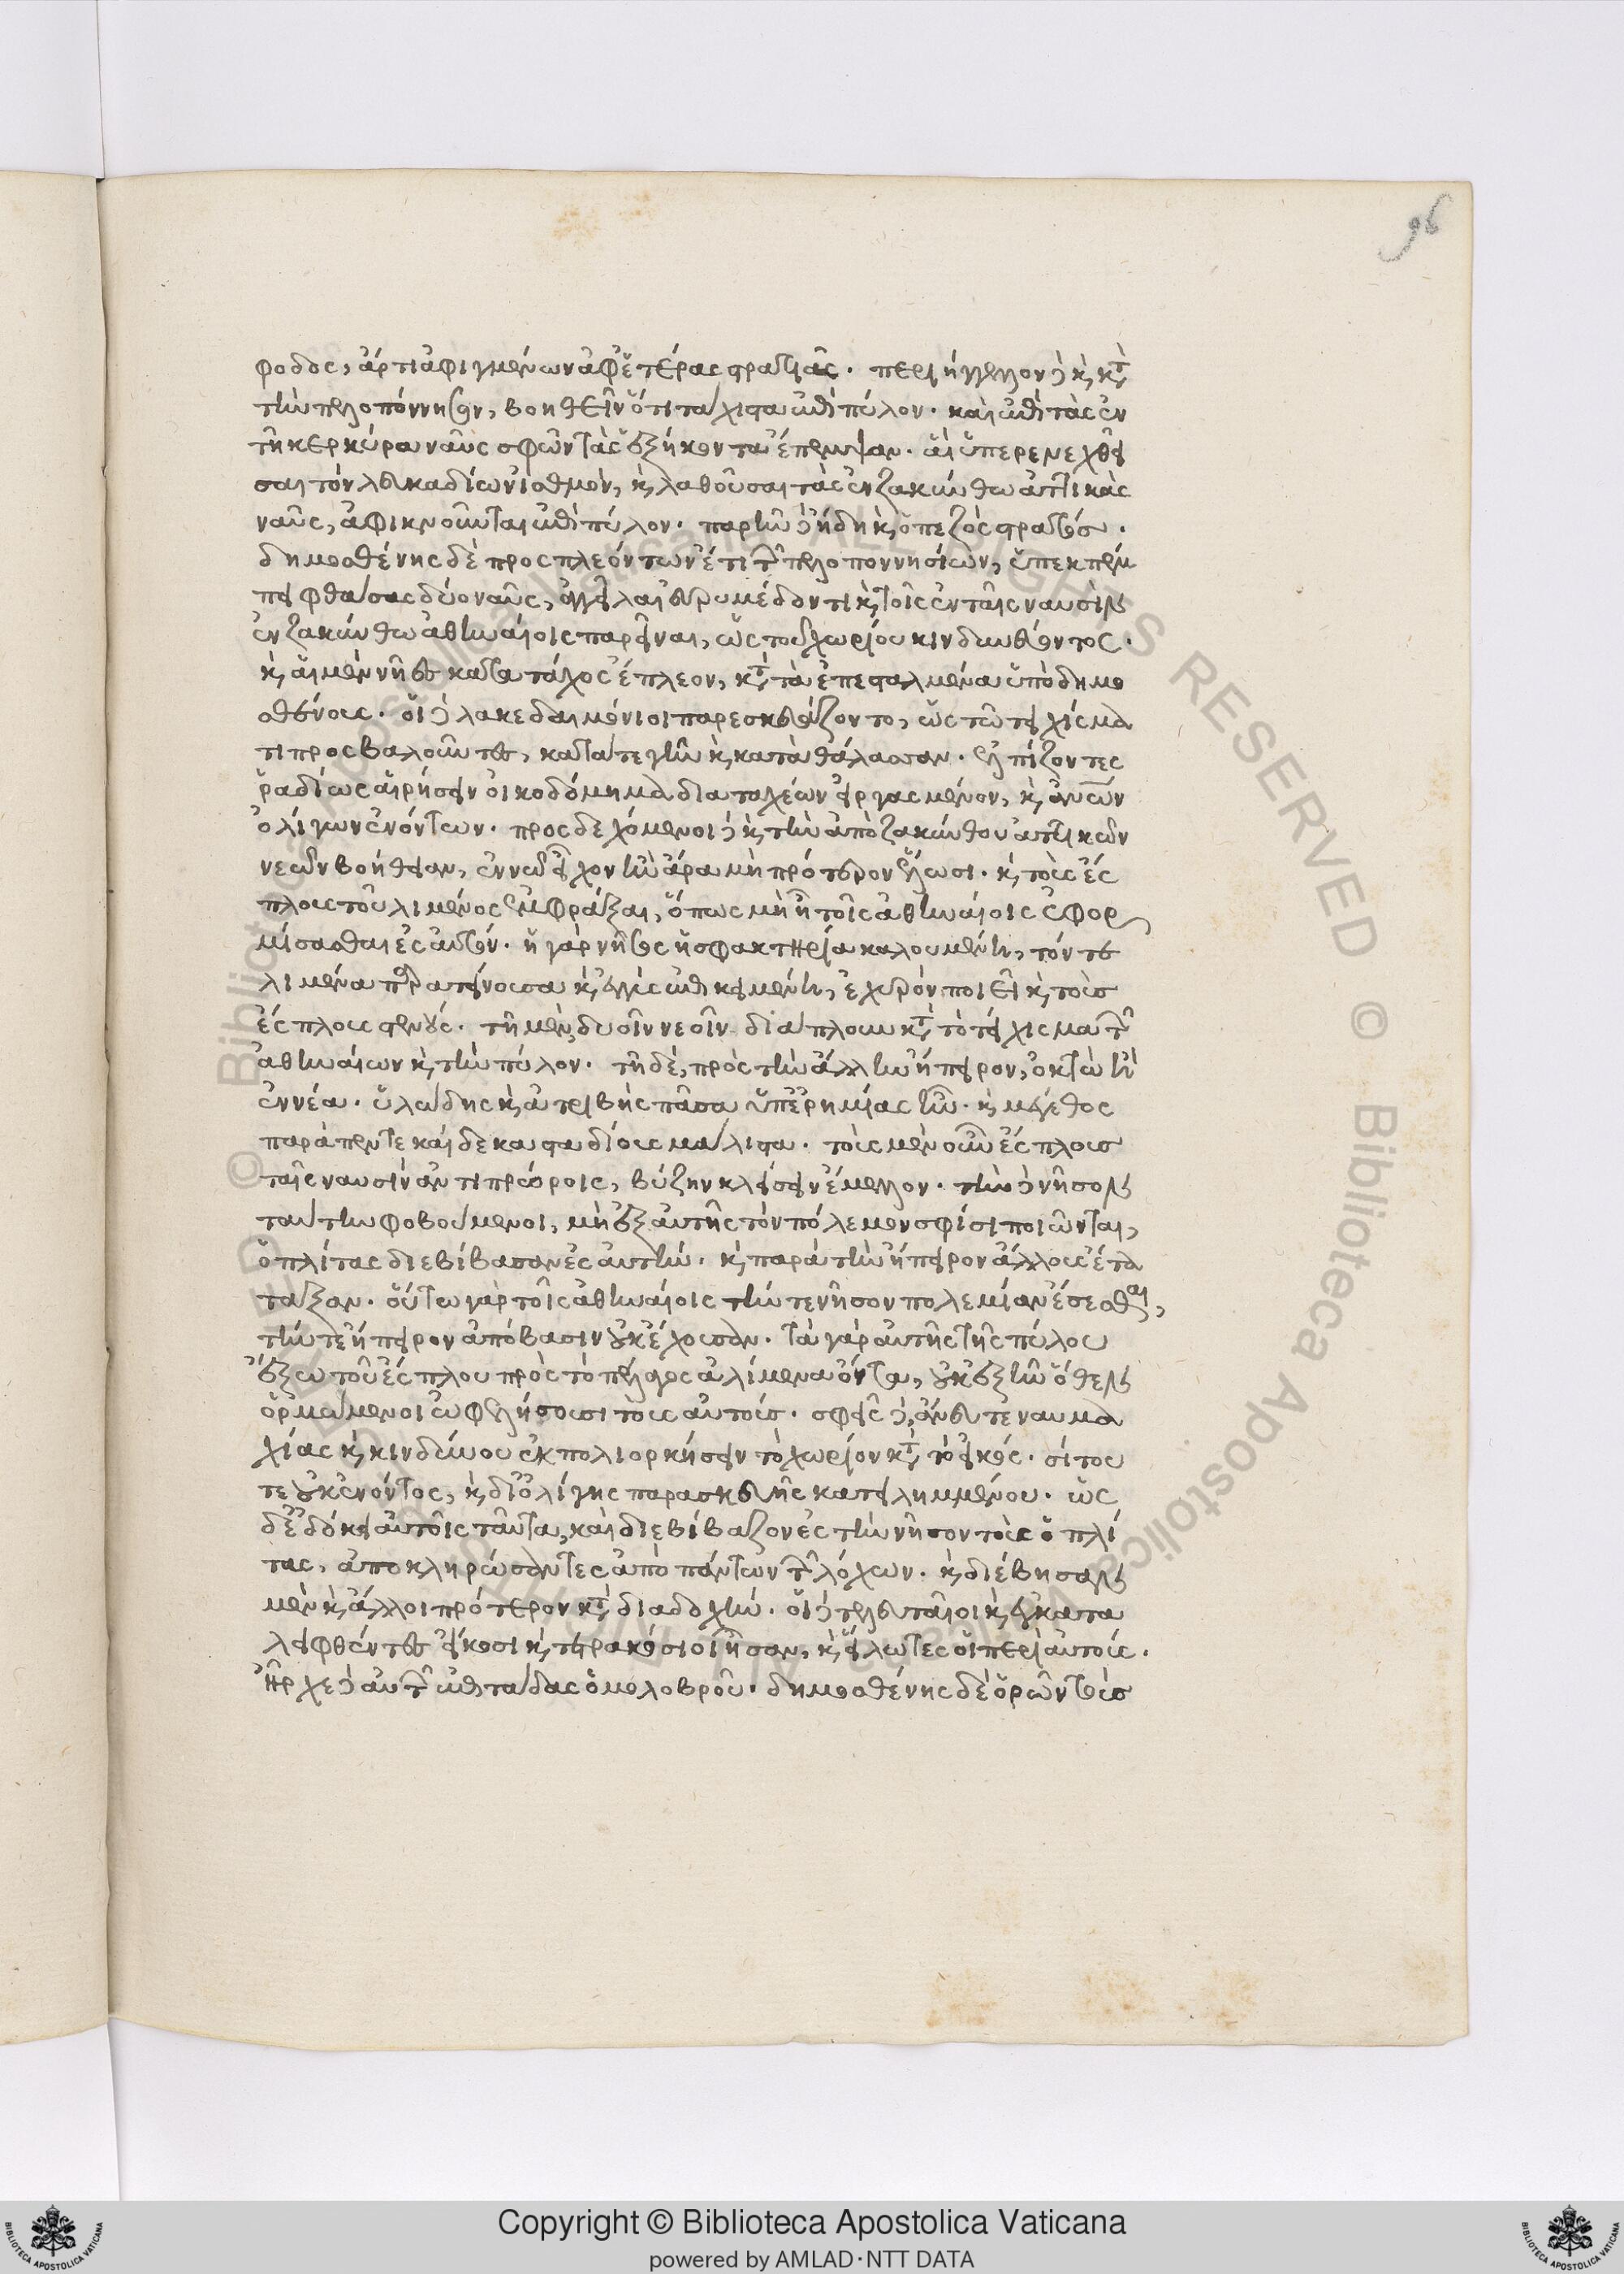 96
φοδος, ἄρτι ἀφιγμένων ἀφ' ἑτέρας στρατιᾶς. περιήγγελλον δὲ καὶ κατὰ
τὴν πελοπόννησον, βοηθεῖν ὅτι τάχιστα ἐπὶ πύλον. καὶ ἐπὶ τὰς ἐν
τῇ κερκύρα ναῦς σφῶν τὰς ἑξήκοντα ἔπεμψαν. αἳ ὑπερενεχθεῖ
σαι τὸν λευκαδίων ἰσθμόν, καὶ λαθοῦσαι τὰς ἐν ζακύνθω ἀττικὰς
ναῦς, ἀφικνοῦνται ἐπὶ πύλον. παρῆν δὲ ἤδη καὶ ὁ πεζὸς στρατός.
δημοσθένης δὲ προσπλεόντων ἔτι τῶν πελοποννησίων, ὑπεκπέμ
πει φθάσας δύο ναῦς, ἀγγεῖλαι εὐρυμέδοντι καὶ τοῖς ἐν ταῖς ναυσὶν
ἐν ζακύνθω ἀθηναίοις παρεῖναι, ὡς τοῦ χωρίου κινδυνεύοντος.
καὶ αἱ μὲν νῆες κατὰ τάχος ἔπλεον, κατὰ τὰ ἐπεσταλμένα ὑπὸ δημο
σθένους. οἱ δὲ λακεδαιμόνιοι παρεσκευάζοντο, ὡς τῶ τειχίσμα
τι προσβαλοῦντες, κατά τε γῆν καὶ κατὰ θάλασσαν. ἐλπίζοντες
ῥαδίως αἱρήσειν οἰκοδόμημα διὰ ταχέων εἰργασμένον, καὶ ἀνθρώπων
ὀλίγων ἐνόντων. προσδεχόμενοι δὲ καὶ τὴν ἀπὸ ζακύνθου ἀττικῶν
νεῶν βοήθειαν, ἐν νῶ εἶχον ἢν ἄρα μὴ πρότερον ἕλωσι. καὶ τοὺς ἔς
πλους τοῦ λιμένος ἐμφράξαι, ὅπως μὴ ᾖ τοῖς ἀθηναίοις ἐφορ
μίσασθαι ἐς αὐτόν. ἡ γὰρ νῆσος ἡ σφακτηρία καλουμένη, τόν τε
λιμένα παρατείνουσα καὶ ἐγγὺς ἐπικειμένη, ἐχυρὸν ποιεῖ καὶ τοὺς
ἔσπλους στενούς. τῇ μὲν, δυοῖν νεοῖν διάπλουν κατὰ τὸ τείχισμα τῶν
ἀθηναίων καὶ τὴν πύλον. τῇ δὲ, πρὸς τὴν ἄλλην ἤπειρον, ὀκτὼ ἢ
ἐννέα. ὑλώδης καὶ ἀτριβὴς πᾶσα ὑπ' ἐρημίας ἦν. καὶ μέγεθος
παρὰ πέντε καὶ δέκα σταδίους μάλιστα. τοὺς μὲν οὖν ἔσπλους
ταῖς ναυσὶν ἀντιπρώροις, βύζην κλείσειν ἔμελλον. τὴν δὲ νῆσον
ταύτην φοβούμενοι, μὴ ἐξ αὐτῆς τὸν πόλεμον σφίσι ποιῶνται,
ὁπλίτας διεβίβασαν ἐς αὐτήν. καὶ παρὰ τὴν ἤπειρον ἄλλους ἔτα
ταξαν. οὕτω γὰρ τοῖς ἀθηναίοις τήν τε νῆσον πολεμίαν ἔσεσθαι,
τήν τε ἤπειρον ἀπόβασιν οὐκ ἔχουσαν. τὰ γὰρ αὐτῆς τῆς πύλου
ἔξω τοῦ ἔσπλου πρὸς τὸ πέλαγος ἀλίμενα ὄντα, οὐκ ἕξειν ὅθεν
ὁρμώμενοι ὠφελήσουσι τοὺς αὐτούς. σφεῖς δὲ, ἄνευ τε ναυμα
χίας καὶ κινδύνου ἐκπολιορκήσειν τὸ χωρίον κατὰ τὸ εἰκός. σίτου
τε οὐκ ἐνόντος, καὶ δι' ὀλίγης παρασκευῆς κατειλημμένου. ὡς
δ' ἐδόκει αὐτοῖς ταῦτα, καὶ διεβίβαζον ἐς τὴν νῆσον τοὺς ὁπλί
τας, ἀποκληρώσαντες ἀπὸ πάντων τῶν λόχων. καὶ διέβησαν
μὲν καὶ ἄλλοι πρότερον κατὰ διαδοχήν. οἱ δὲ τελευταῖοι καὶ ἐγκατα
λειφθέντες εἴκοσι καὶ τετρακόσιοι ἦσαν, καὶ εἵλωτες οἱ περὶ αὐτούς.
ἦρχε δὲ αὐτῶν ἐπιτάδας ὁ μολοβροῦ. δημοσθένης δὲ ὁρῶν τοὺς
Copyright © Biblioteca Apostolica Vaticana
powered by AMLAD·NTT DATA